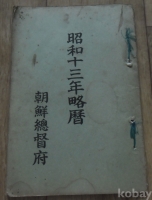 昭和十三年略曆
朝鮮總督府
kobay